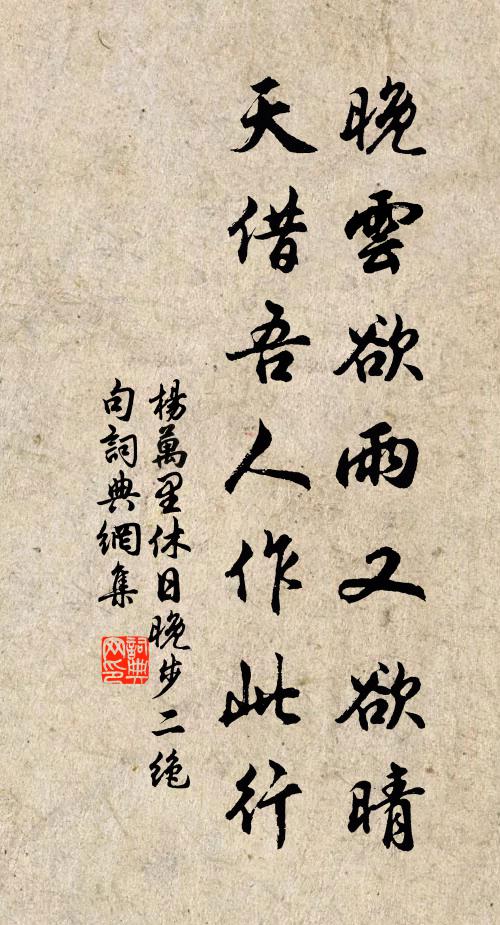 晚雲欲雨又欲晴
天借吾人作此行
楊萬里休日晚步二绝
句詞典網集
詞典
网印